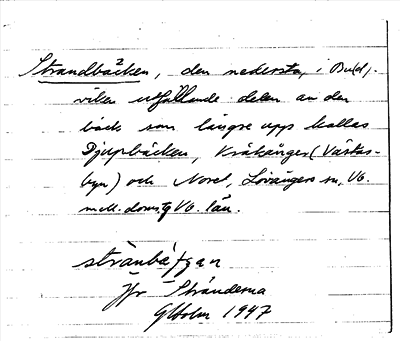 Strandbäcken, den nedersta, i Bud-
viken utfallande delen av den
bäck som längre upp kallas
Djupbäcken, Kråkånger (Västan-
byn) och Norel, Lövångers sn, Vb.
mell. doms. Vb. län.
stranbä
Jfr Stränderna
G Holm 1947